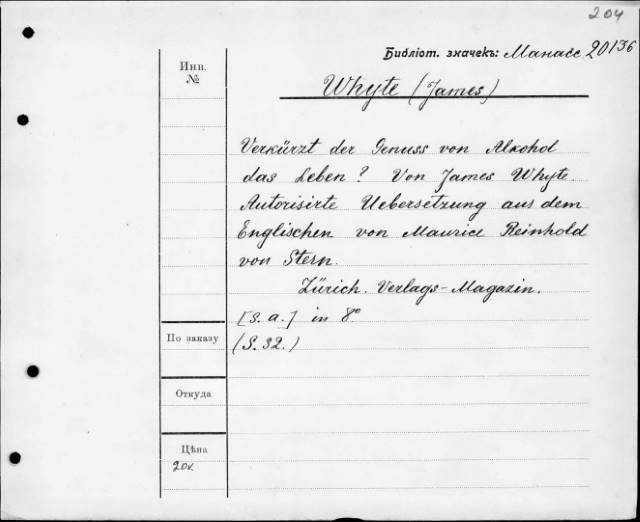 204
Библіот. значекъ: Манасс 20/136
Инв.
№
Whyte (James)
Verkürzt der Genuss von Alkohol
das Leben? Von James Whyte.
Autorisirte Uebersetzung aus dem
Englischen von Maurice Reinhold
von Stern.
Zürich. Verlags-Magazin.
[s. a.] in 8°
По заказу
(S. 32.)
Откуда
Цѣна
20к.